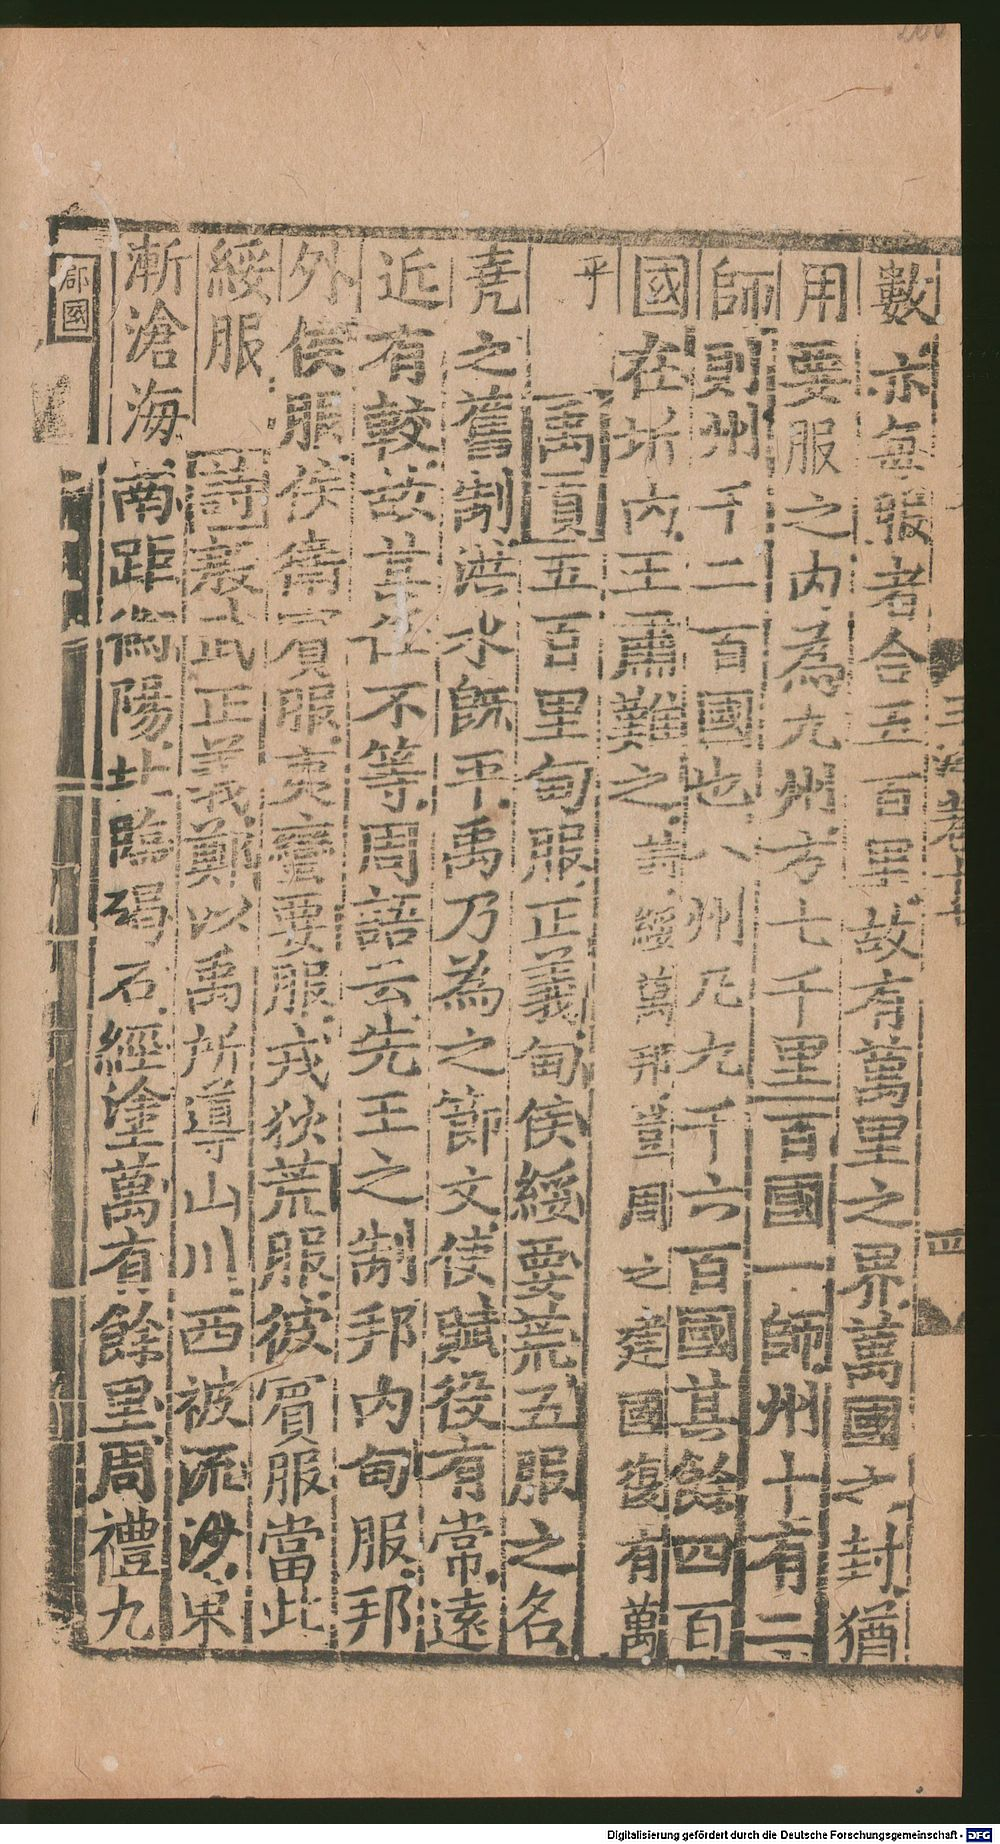 數亦每服者合五百里故有萬里之界萬國之封猶
用要服之內為九州方七千里百國一師州十有二
師則州千二百國也八州凡九千六百國其餘四百
國在圻內王肅難之詩綏萬邦豈周之建國復有萬
乎
禹貢五百里甸服正義甸侯綏要荒五服之名
堯之舊制洪水既平禹乃為之節文使賦役有常遠
近有較故其任不等周語云先王之制邦內甸服邦
外侯服侯衛賓服夷蠻要服戎狄荒服彼賓服當此
綏服 詩殷武正義鄭以禹所導山川西被流沙東
漸滄海南距衡陽北臨碣石經塗萬有餘里周禮九
郡國
Digitalisierung gefördert durch die Deutsche Forschungsgemeinschaft - DFG